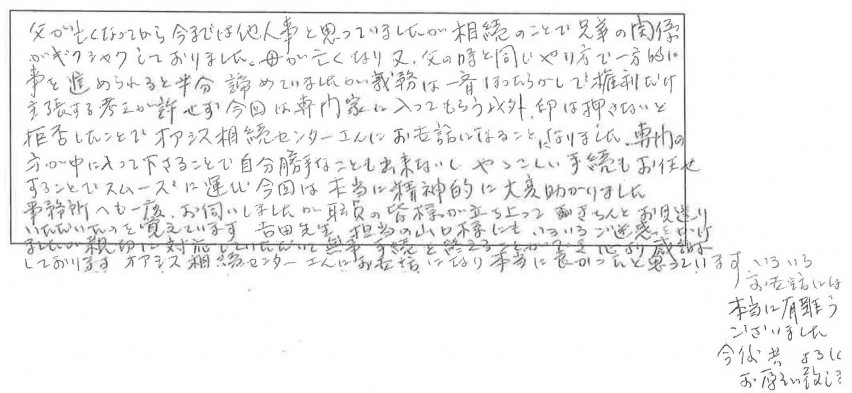 父が亡くなってから今までは他人事と思っていましたが相続のことで兄弟の関係
がギクシャクしておりました。母が亡くなり又、父の時と同じやり方で一方的に
事を進められると半分諦めていましたが義務は一番ほったらかしで権利だけ
主張する考えが許せず今回は専門家に入ってもらう以外、印は押さないと
拒否したことでオアシス相続センターさんにお世話になることになりました。専門の
方が中に入って下さることで自分勝手なことも出来ないし ややこしい手続もお任せ
することでスムーズに運び今回は本当に精神的に大変助かりました
事務所へも一度、お伺いしましたが職員の皆様が立ち上って きちんとお見送り
いただいたのを覚えています 吉田先生、担当の山口様にもいろいろご迷惑をおかけ
ましたが親切に対応していただいて無事手続を終えることができ心より感謝
しております オアシス相続センターさんにお世話になり本当に良かったと思っています いろいろ
お世話には
本当に有難う
ございました
今後共 よろしく
お願い致しま